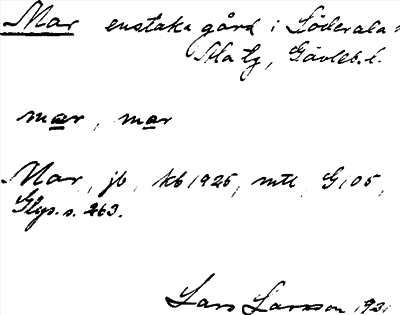 Mar enstaka gård i Söderala
Gävleb. l.
mar, mar
Mar, jb, kb 1925, mtl, G05,
Glgs. s. 263.
Lars Larsson 193